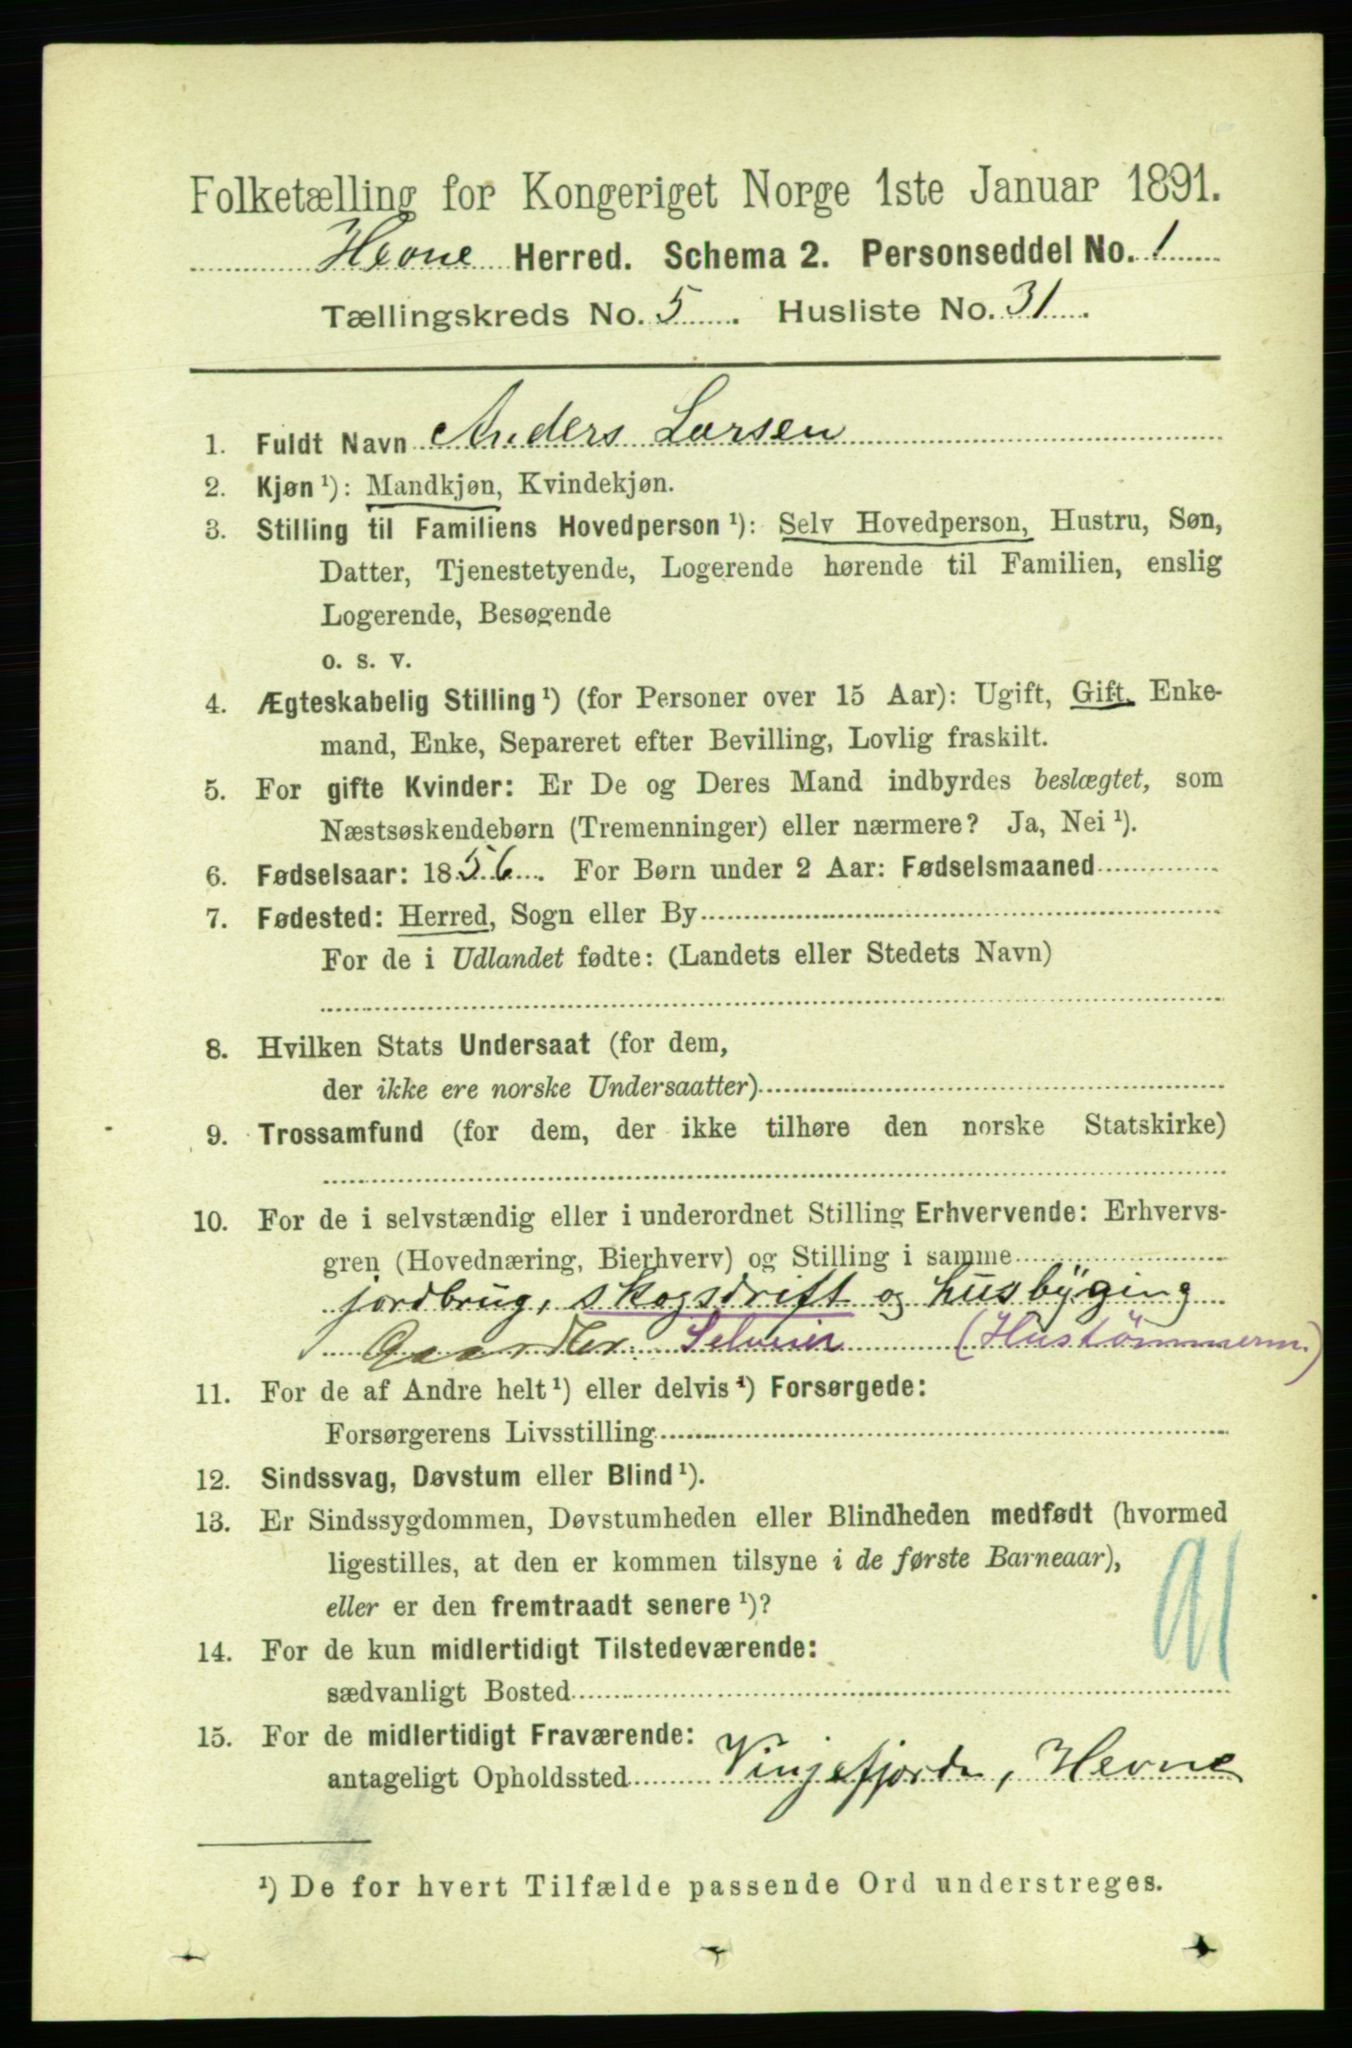 Folketælling for Kongeriget Norge 1ste Januar 1891.
Hevne Herred. Schema 2. Personseddel No. 1
Tællingskreds No. 5. Husliste No. 31.
1. Fuldt Navn Anders Larsen
2. Kjøn¹): Mandkjøn, Kvindekjøn.
3. Stilling til Familiens Hovedperson¹): Selv Hovedperson, Hustru, Søn,
Datter, Tjenestetyende, Logerende hørende til Familien, enslig
Logerende, Besøgende
o. s. v.
4. Ægteskabelig Stilling¹) (for Personer over 15 Aar): Ugift, Gift, Enke-
mand, Enke, Separeret efter Bevilling, Lovlig fraskilt.
5. For gifte Kvinder: Er De og Deres Mand indbyrdes beslægtet, som
Næstsøskendebørn (Tremenninger) eller nærmere? Ja, Nei¹).
6. Fødselsaar: 1856. For Børn under 2 Aar: Fødselsmaaned
7. Fødested: Herred, Sogn eller By
For de i Udlandet fødte: (Landets eller Stedets Navn)
8. Hvilken Stats Undersaat (for dem,
der ikke ere norske Undersaatter)
9. Trossamfund (for dem, der ikke tilhøre den norske Statskirke)
10. For de i selvstændig eller i underordnet Stilling Erhvervende: Erhvervs-
gren (Hovednæring, Bierhverv) og Stilling i samme
jordbrug, skogsdrift og husbyging
Selveier (Hustømmerm.)
11. For de af Andre helt¹) eller delvis¹) Forsørgede:
Forsørgerens Livsstilling
12. Sindssvag, Døvstum eller Blind¹).
13. Er Sindssygdommen, Døvstumheden eller Blindheden medfødt (hvormed
ligestilles, at den er kommen tilsyne i de første Barneaar),
eller er den fremtraadt senere¹)?
91
14. For de kun midlertidigt Tilstedeværende:
sædvanligt Bosted
15. For de midlertidigt Fraværende:
antageligt Opholdssted Vinjefjorden, Hevne
¹) De for hvert Tilfælde passende Ord understreges.